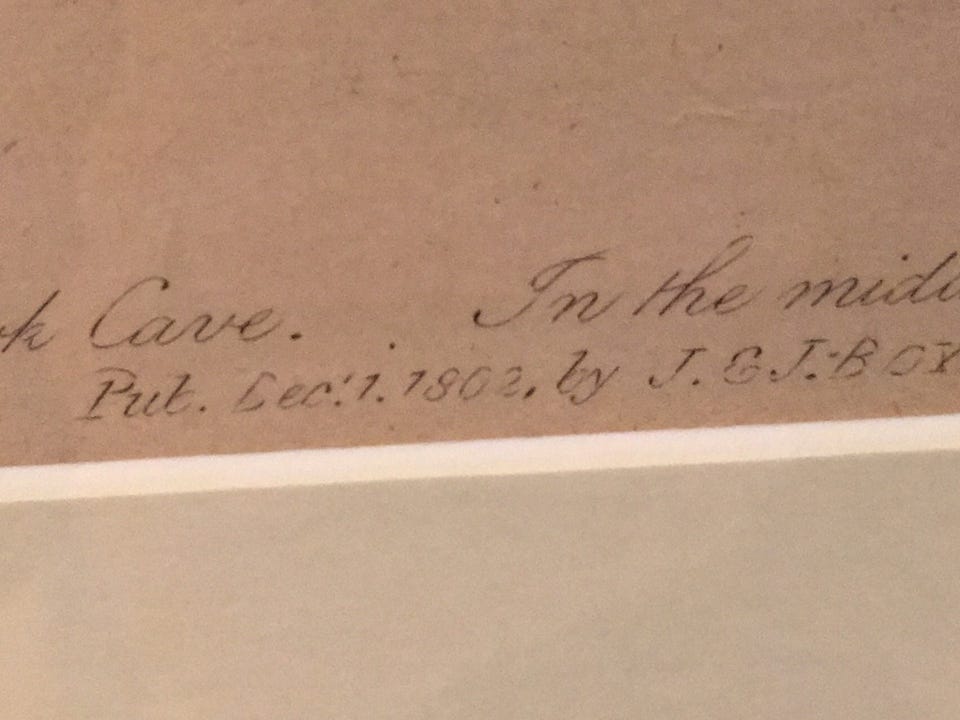 Cave. In the
Pub. Dec. 1. 1802, by J. & J. BOY